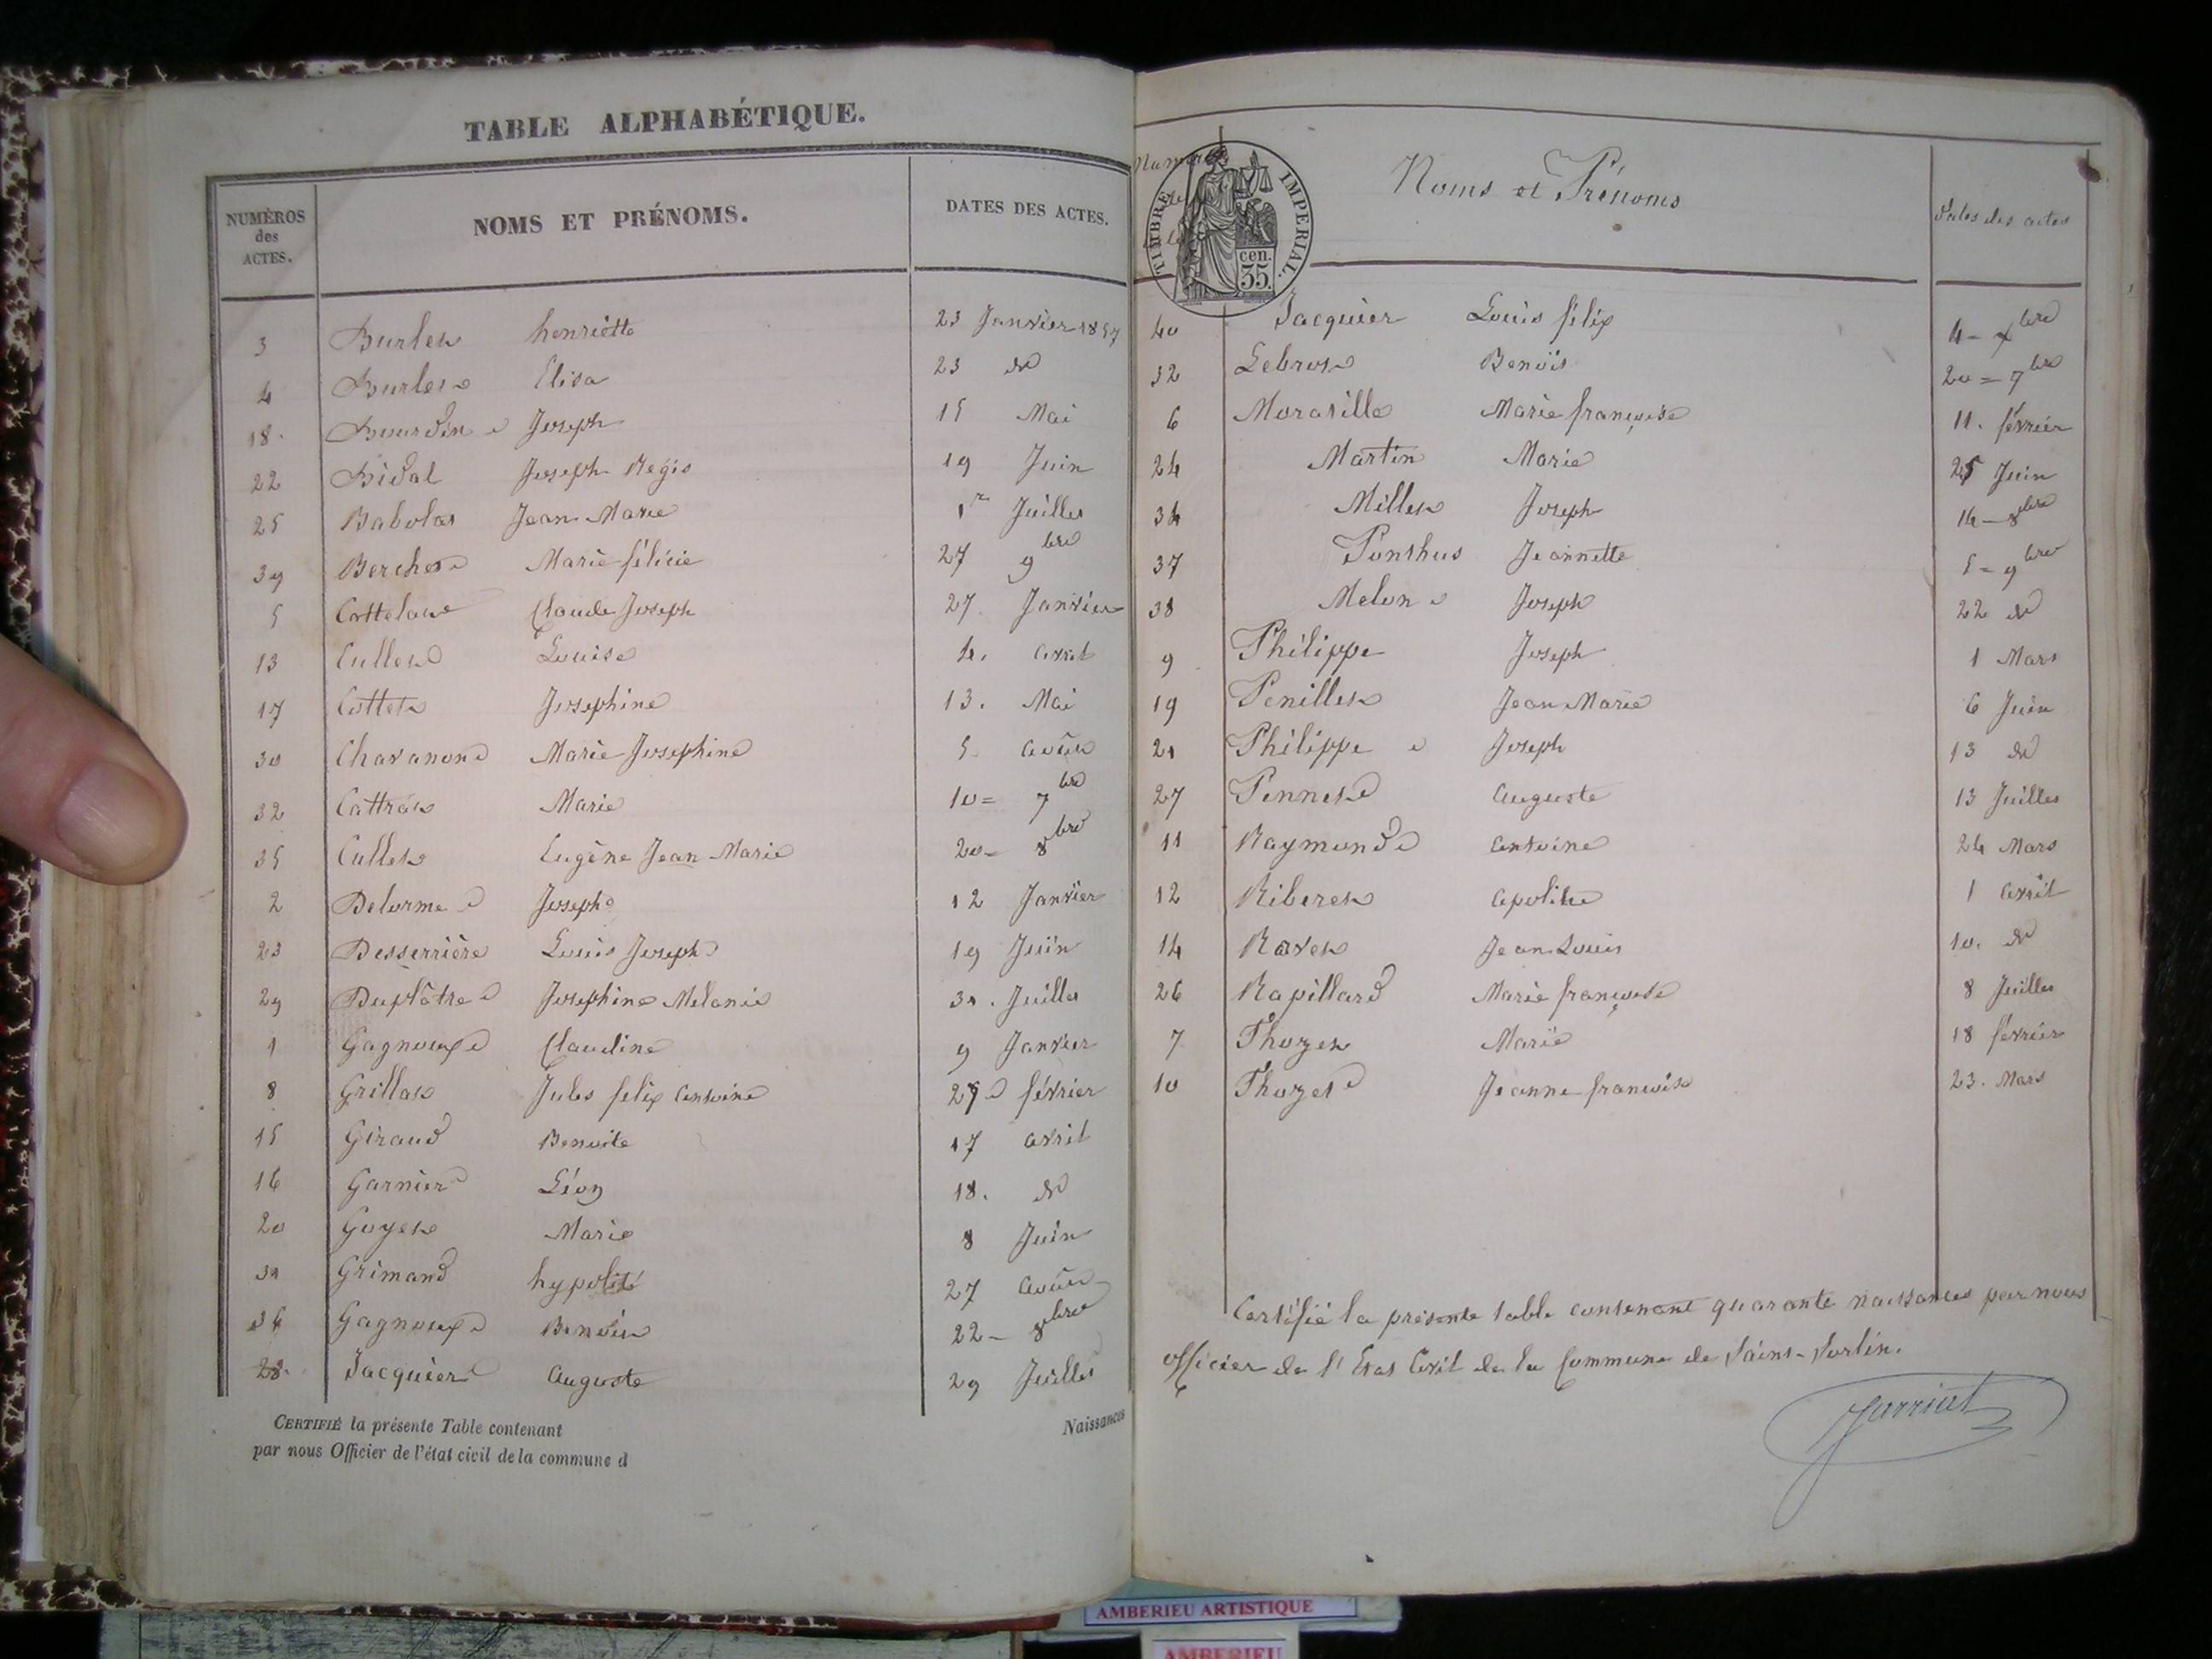 TABLE ALPHABÉTIQUE.
NUMÉROS
des
ACTES.
NOMS ET PRÉNOMS.
DATES DES ACTES.
3 Burlet henriette 23 Janvier 1857
4 Burlet Elisa 23 do
18. Bourdin Joseph 15 Mai
22 Bidal Joseph Regis 19 Juin
25 Babolat Jean Marie 1er Juillet
39 Berchet Marie félicie 27 9bre
5 Claude Joseph 27. Janvier
13 Cullet Louise 4. avril
17 Cottet Josephine 13. Mai
30 Chavanon Marie Josephine 5 août
32 Marie 10= 7bre
35 Cullet Eugène Jean Marie 20- 8bre
2 Delorme Joseph 12 Janvier
23 Desserrière Louis Joseph 19 Juin
29 Duplâtre Josephine Melanie 31. Juillet
1 Gagnoux Claudine 9 Janvier
8 Grillat Jules felix antoine février
15 Giraud Benoite 17 avril
16 Garnier Léon 18. do
20 Goyet Marie 8 Juin
31 Grimand hypolite 27 août
36 Gagnoux Benoit 22- 8bre
28. Jacquier Auguste 29 Juillet
CERTIFIÉ la présente Table contenant Naissances
par nous Officier de l'état civil de la commune d
Numéros
TIMBRE IMPERIAL.
cen.
35.
Noms et Prénoms
Dates des actes
40 Jacquier Louis félix 4- xbre
32 Lebrost Benoit 20= 7bre
6 Moraville Marie françoise 11. février
24 Martin Marie 25 Juin
34 Millet Joseph 14- 8bre
37 Ponthus Jeannette 5= 9bre
38 Melon Joseph 22 do
9 Philippe Joseph 1 Mars
19 Penillet Jean Marie 6 Juin
21 Philippe Joseph 13 do
27 Pennet auguste 13 Juillet
11 Raymond antoine 24 Mars
12 Riberet apoline 1 avril
14 Ravet Jean Louis 10. do
26 Rapillard Marie françoise 8 Juillet
7 Thozet Marie 18 février
10 Thozet Jeanne francoise 23. Mars
Certifié la présente table contenant quarante naissances par nous
officier de l'Etat Civil de la Commune de Saint-Sorlin.
Jarriat
AMBERIEU ARTISTIQUE
AMBERIEU